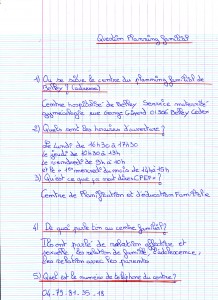 Question Planning familial
1) Où se situe le centre du planning familial de
Belley ? (adresse)
Centre hospitalier de Belley Service maternité
gynécologie rue Georges Girerd 01306 Belley Cedex
2) Quels sont les horaires d'ouverture ?
le lundi de 16h30 à 17h30
le jeudi de 10h30 à 13h
le vendredi de 9h à 10h
et le 1er mercredi du mois de 14h à 15h
3) Qu'est ce que ça veut dire « CPEF » ?
Centre de Planification et d'éducation Familiale
4) De quoi parle t-on au centre familial ?
Ils ont parlé de relation affective et
sexuelle, les relation de famille, l'adolescence,
les relation avec les parents
5) Quel est le numéro de téléphone du centre ?
04.79.81.35.18